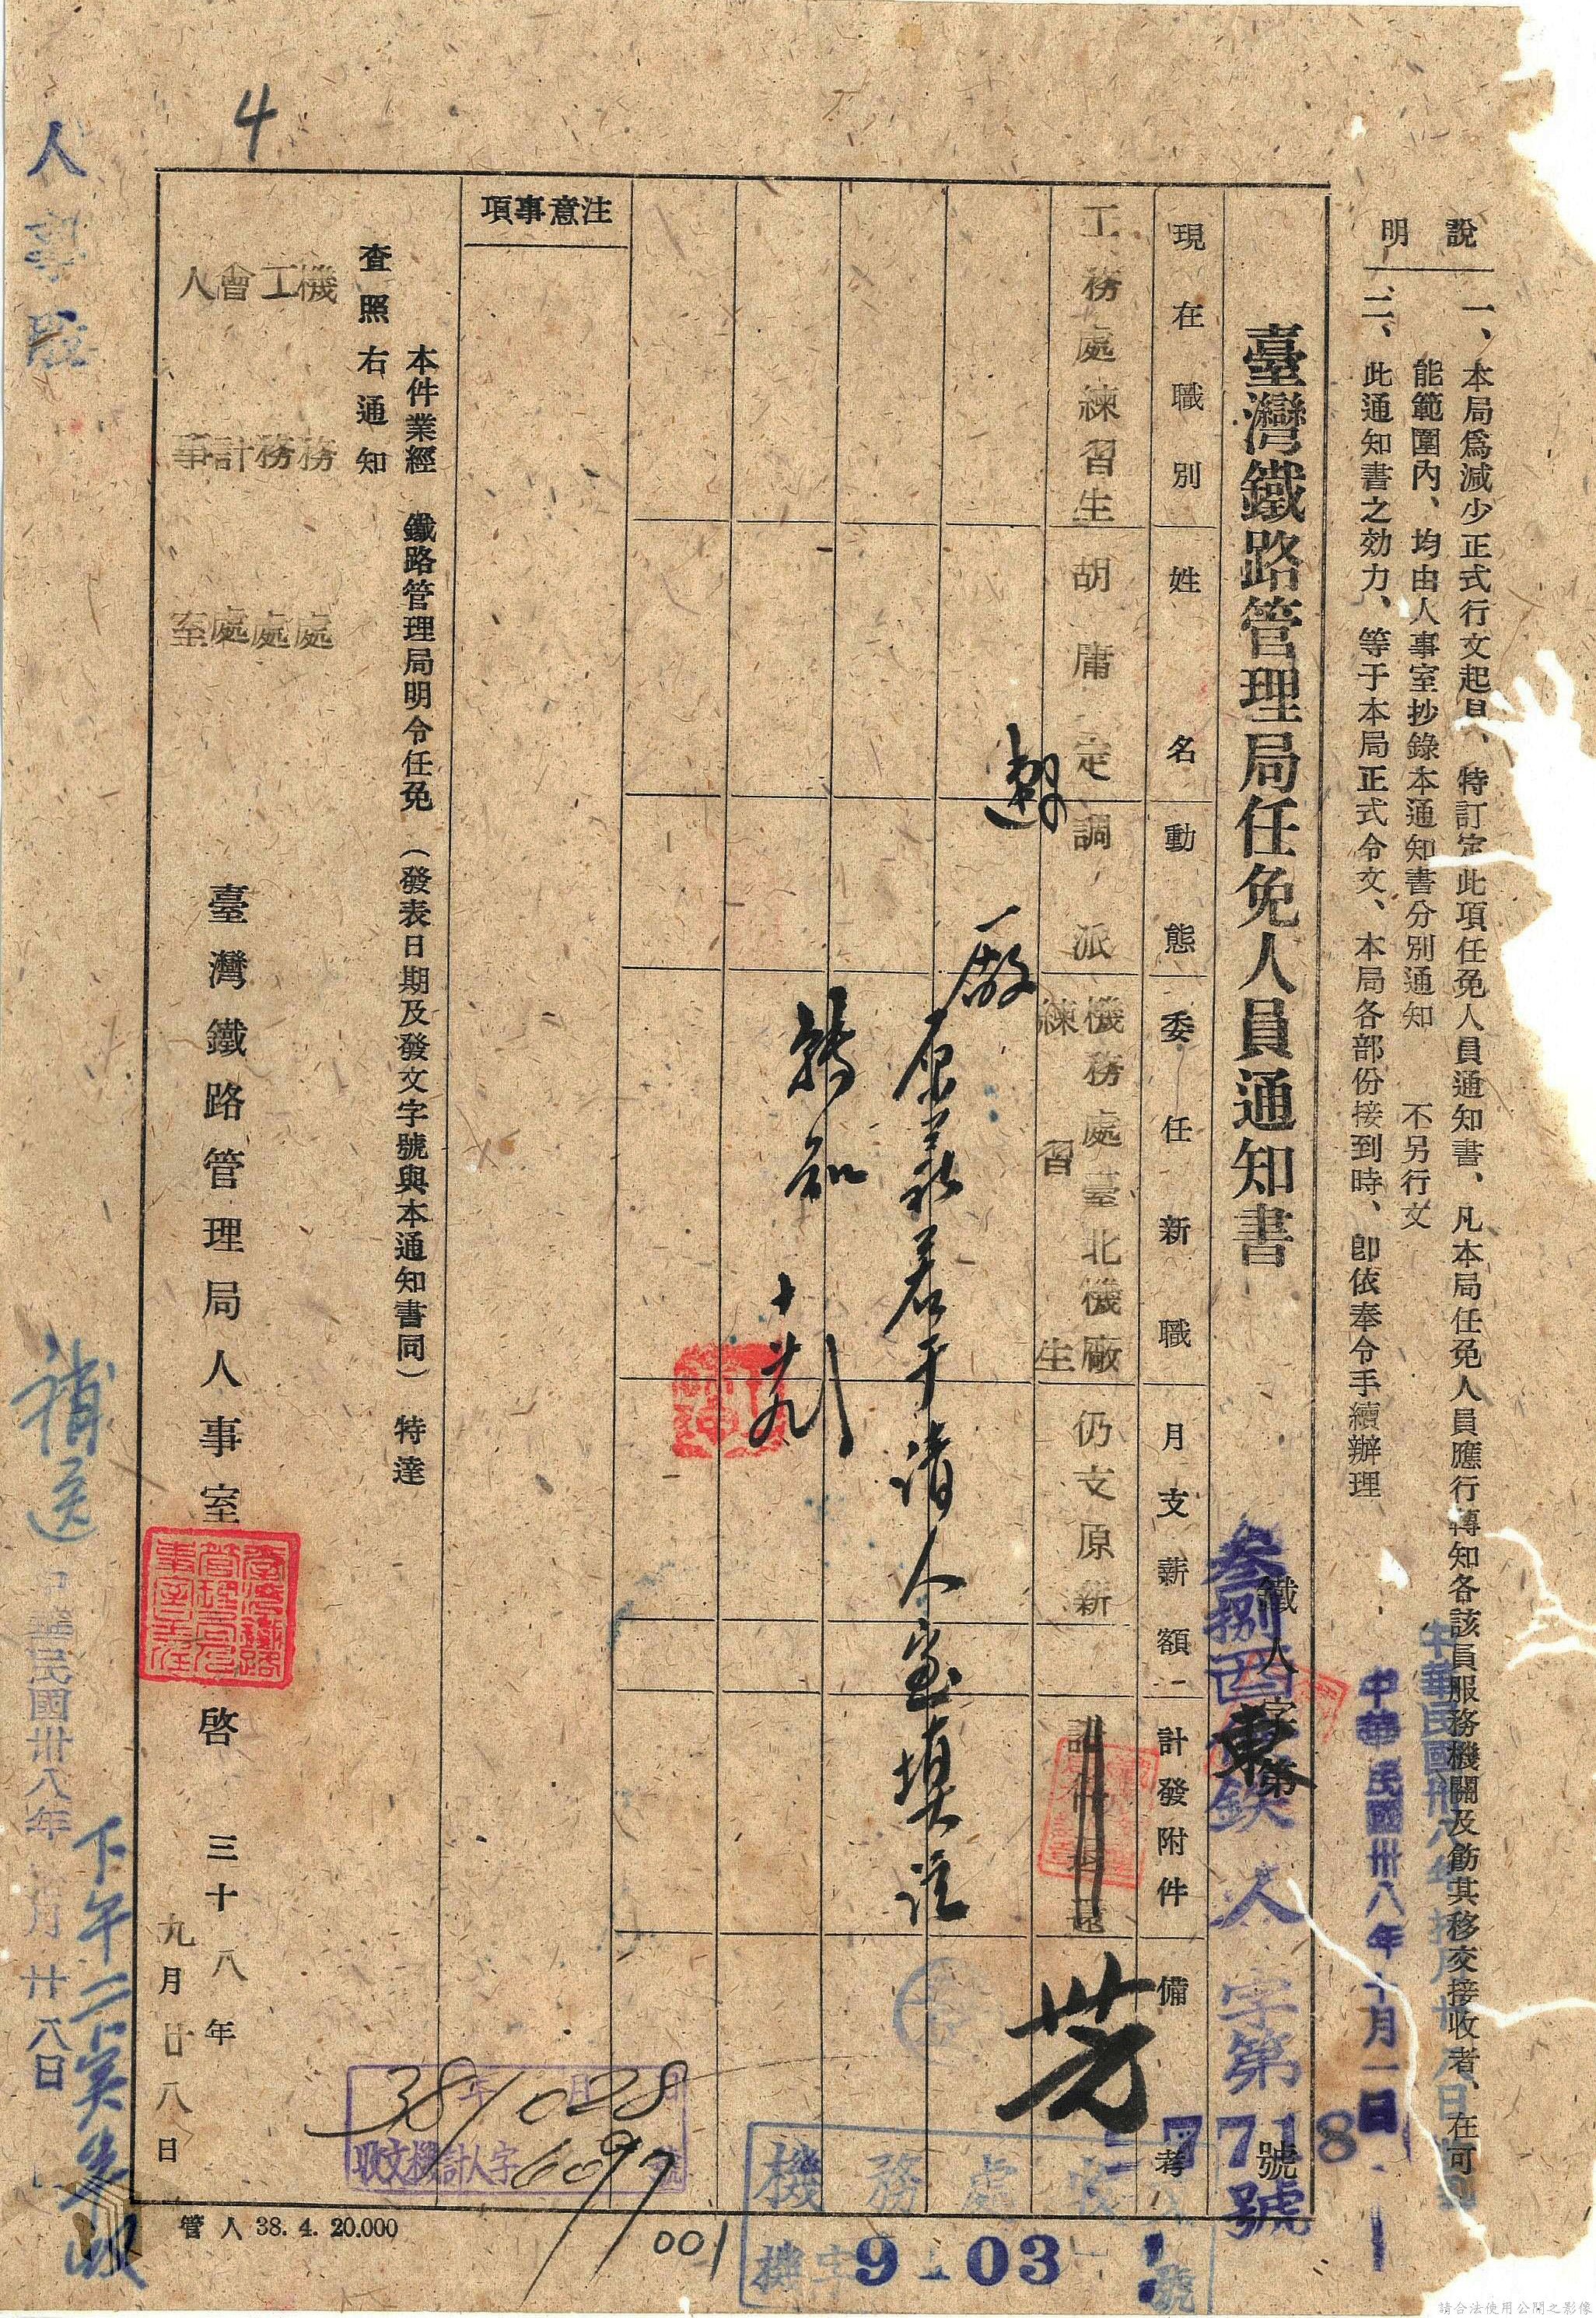 說明
一、本局爲減少正式行文起見、特訂定此項任免人員通知書、凡本局任免人員應行轉知各該員服務機關及飭其移交接收者、在可
能範圍內、均由人事室抄錄本通知書分別通知 不另行文
二、此通知書之効力、等于本局正式令文、本局各部份接到時、卽依奉令手續辦理
中華民國卅八年十月一日
臺灣鐵路管理局任免人員通知書
鐵人字第 號
人字第7718號
現在職別
姓名
動態
委任新職
月支薪額
計發附件
備考
工務處練習生
胡庸定
調派
機務處臺北機廠
練習生
仍支原薪
芳
原薪若干請人室填註
轉知
注意事項
本件業經 鐵路管理局明令任免 (發表日期及發文字號與本通知書同) 特達
查照右通知
機務處
工務處
會計處
人事室
臺灣鐵路管理局人事室 啓 三十八年
九月廿八日
人事股
補送
中華民國卅八年 月廿八日
年 月 日
38/1028
收文機計人字 號
6097
機務處收文
機字 號
9 03
001
管人 38. 4. 20.000
4
請合法使用公開之影像